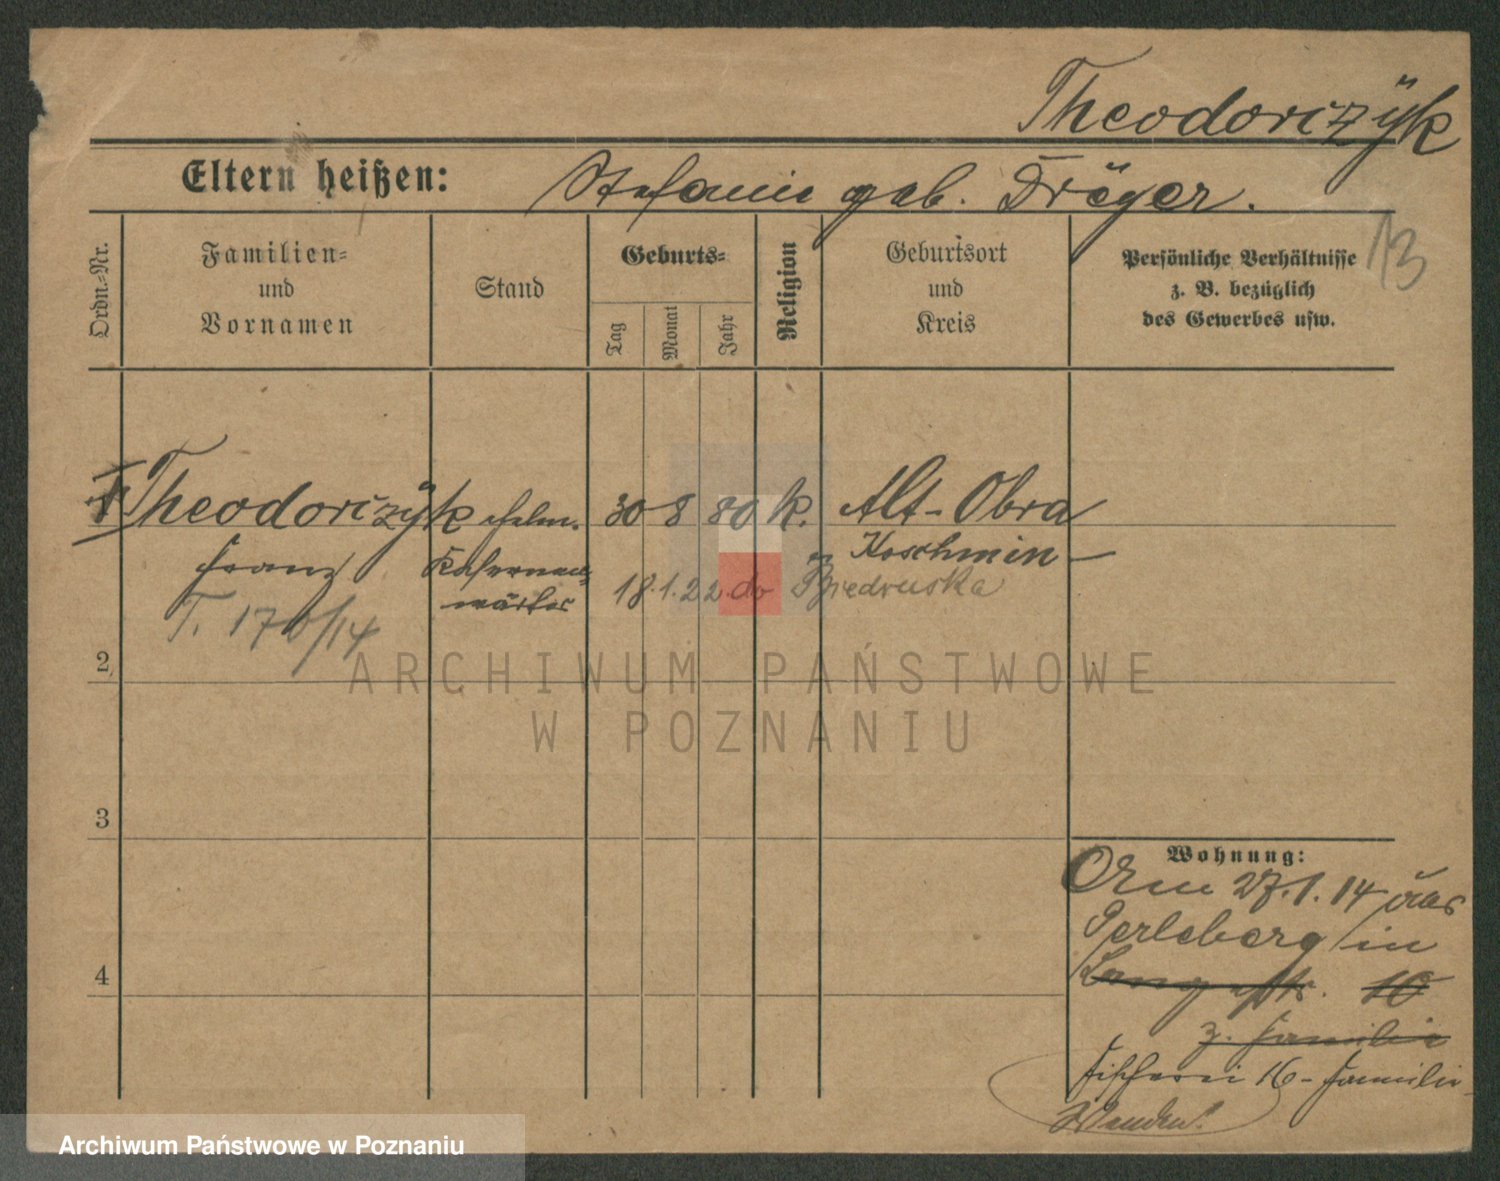 Theodorczÿk
Eltern heißen: Stefanie geb. Dräger.
13
Ordn.=Nr.
Familien=
und
Vornamen
Stand
Geburts=
Tag
Monat
Jahr
Religion
Geburtsort
und
Kreis
Persönliche Verhältnisse
z. B. bezüglich
des Gewerbes usw.
Theodorczÿk ehem. 30 8 80 k. Alt-Obra
Franz Kasernen Koschmin
wärter 18.1.22. do Biedruska
T. 170/14
2
3
4
Wohnung:
Am 27.1.14 aus
Perleberg in
Langestr. 10
z. Familie
Fischerei 16 - Familie
ARCHIWUM PAŃSTWOWE
W POZNANIU
Archiwum Państwowe w Poznaniu